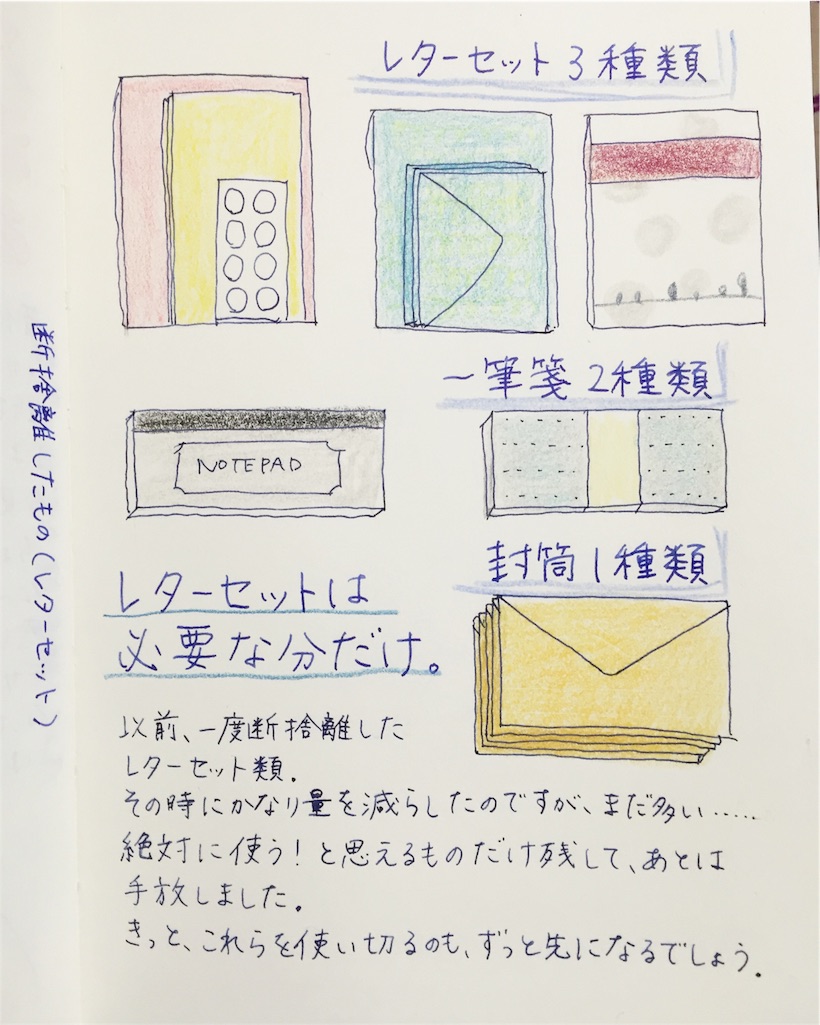 レターセット3種類
一筆箋2種類
NOTEPAD
封筒1種類
レターセットは
必要な分だけ。
以前、一度断捨離した
レターセット類.
その時にかなり量を減らしたのですが、まだ多い……
絶対に使う!と思えるものだけ残して、あとは
手放しました.
きっと、これらを使い切るのも、ずっと先になるでしょう.
断捨離したもの(レターセット)